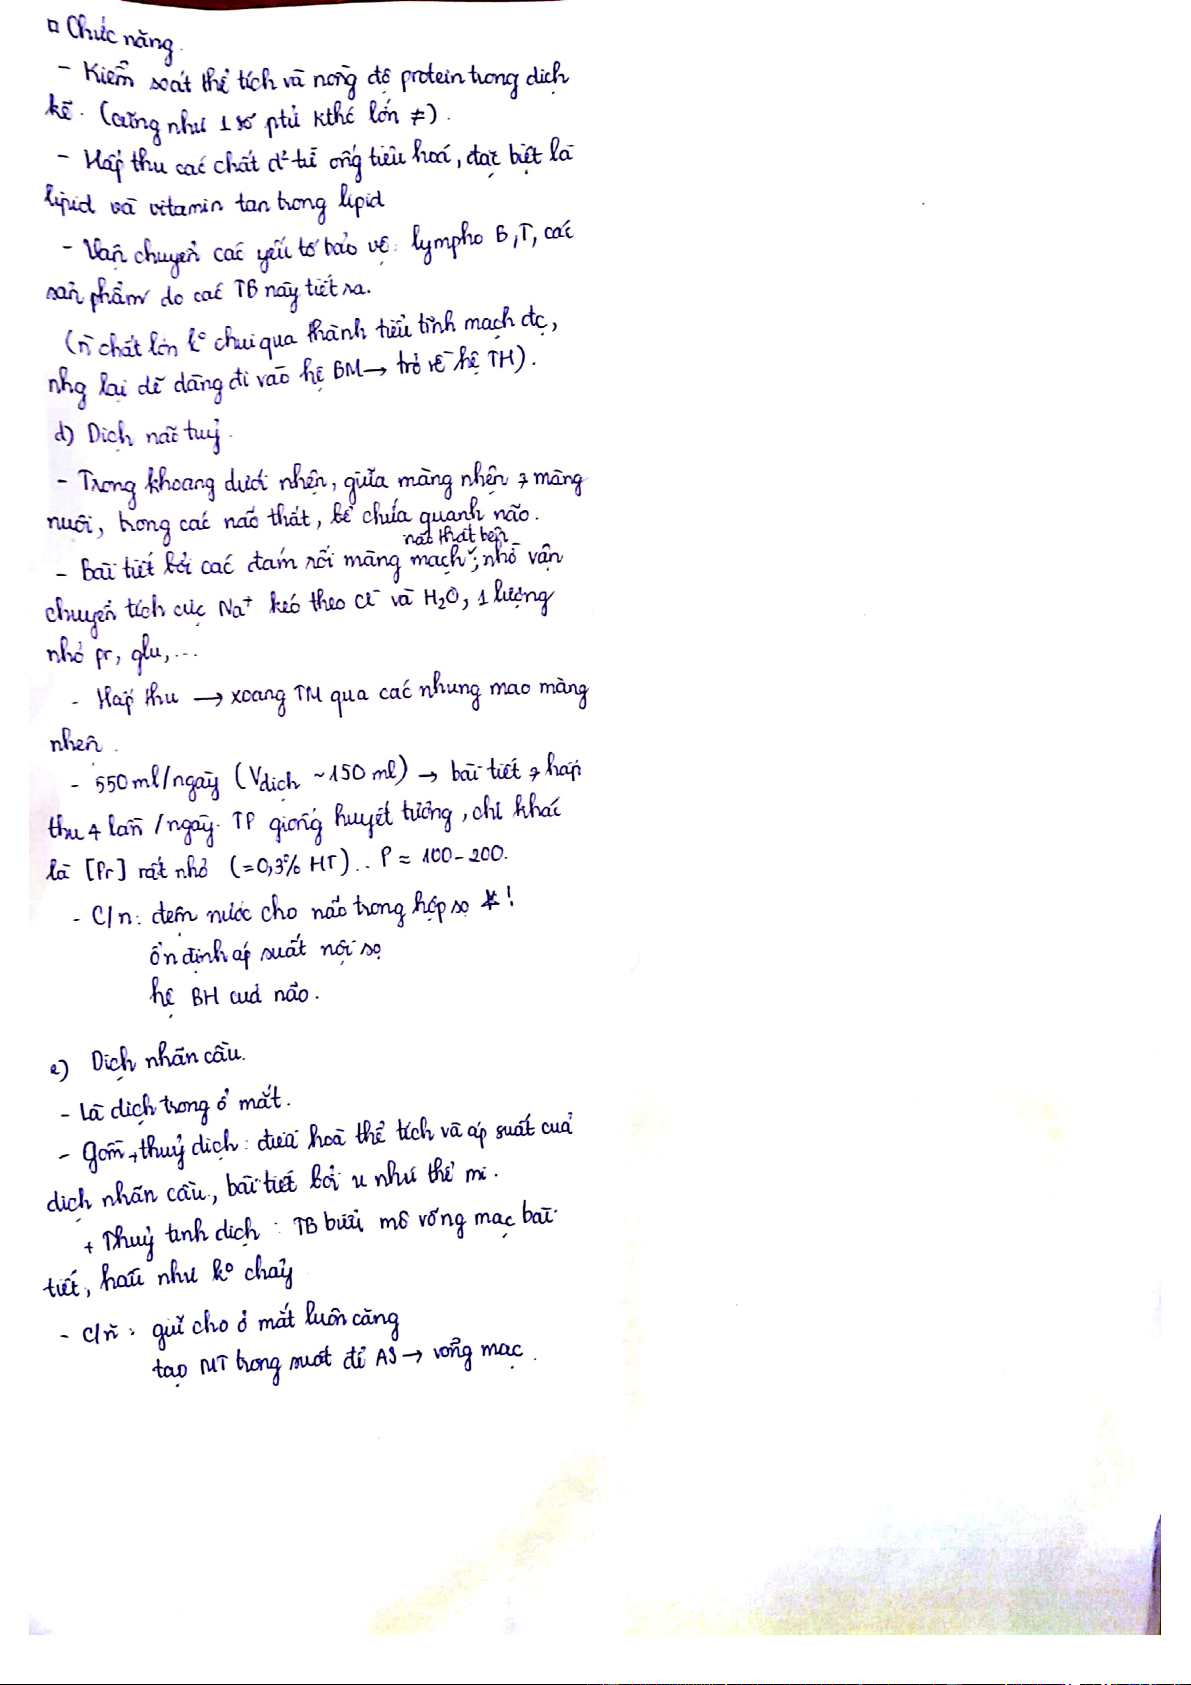 □ Chức năng.
- Kiểm soát thể tích và nồng độ protein trong dịch
kẽ. (cũng như 1 số ptử kthc lớn ≠).
- Hấp thu các chất d² từ ống tiêu hoá, đặc biệt là
lipid và vitamin tan trong lipid
- Vận chuyển các yếu tố bảo vệ: lympho B, T, các
sản phẩm do các TB này tiết ra.
(n~ chất lớn k° chui qua thành tiểu tĩnh mạch đc,
nhg lại dễ dàng đi vào hệ BM → trở về hệ TH).
d) Dịch não tuỷ.
- Trong khoang dưới nhện, giữa màng nhện & màng
nuôi, trong các não thất, bể chứa quanh não.
não thất bên
- Bài tiết bởi các đám rối màng mạch ; nhờ vận
chuyển tích cực Na⁺ kéo theo Cl⁻ và H₂O, 1 lượng
nhỏ pr, glu,...
- Hấp thu → xoang TM qua các nhung mao màng
nhện.
- 550ml/ngày (Vdịch ~150 ml) → bài tiết & hấp
thu 4 lần /ngày. TP giống huyết tương, chỉ khác
là [Pr] rất nhỏ (=0,3% HT). P ≈ 100-200.
- C/n: đệm nước cho não trong hộp sọ *!
ổn định áp suất nội sọ
hệ BH của não.
e) Dịch nhãn cầu.
- Là dịch trong ổ mắt.
- Gồm + thuỷ dịch: điều hoà thể tích và áp suất của
dịch nhãn cầu, bài tiết bởi u nhú thể mi.
+ Thuỷ tinh dịch: TB biểu mô võng mạc bài
tiết, hầu như k° chảy
- C/n: giữ cho ổ mắt luôn căng
tạo MT trong suốt để AS → võng mạc.